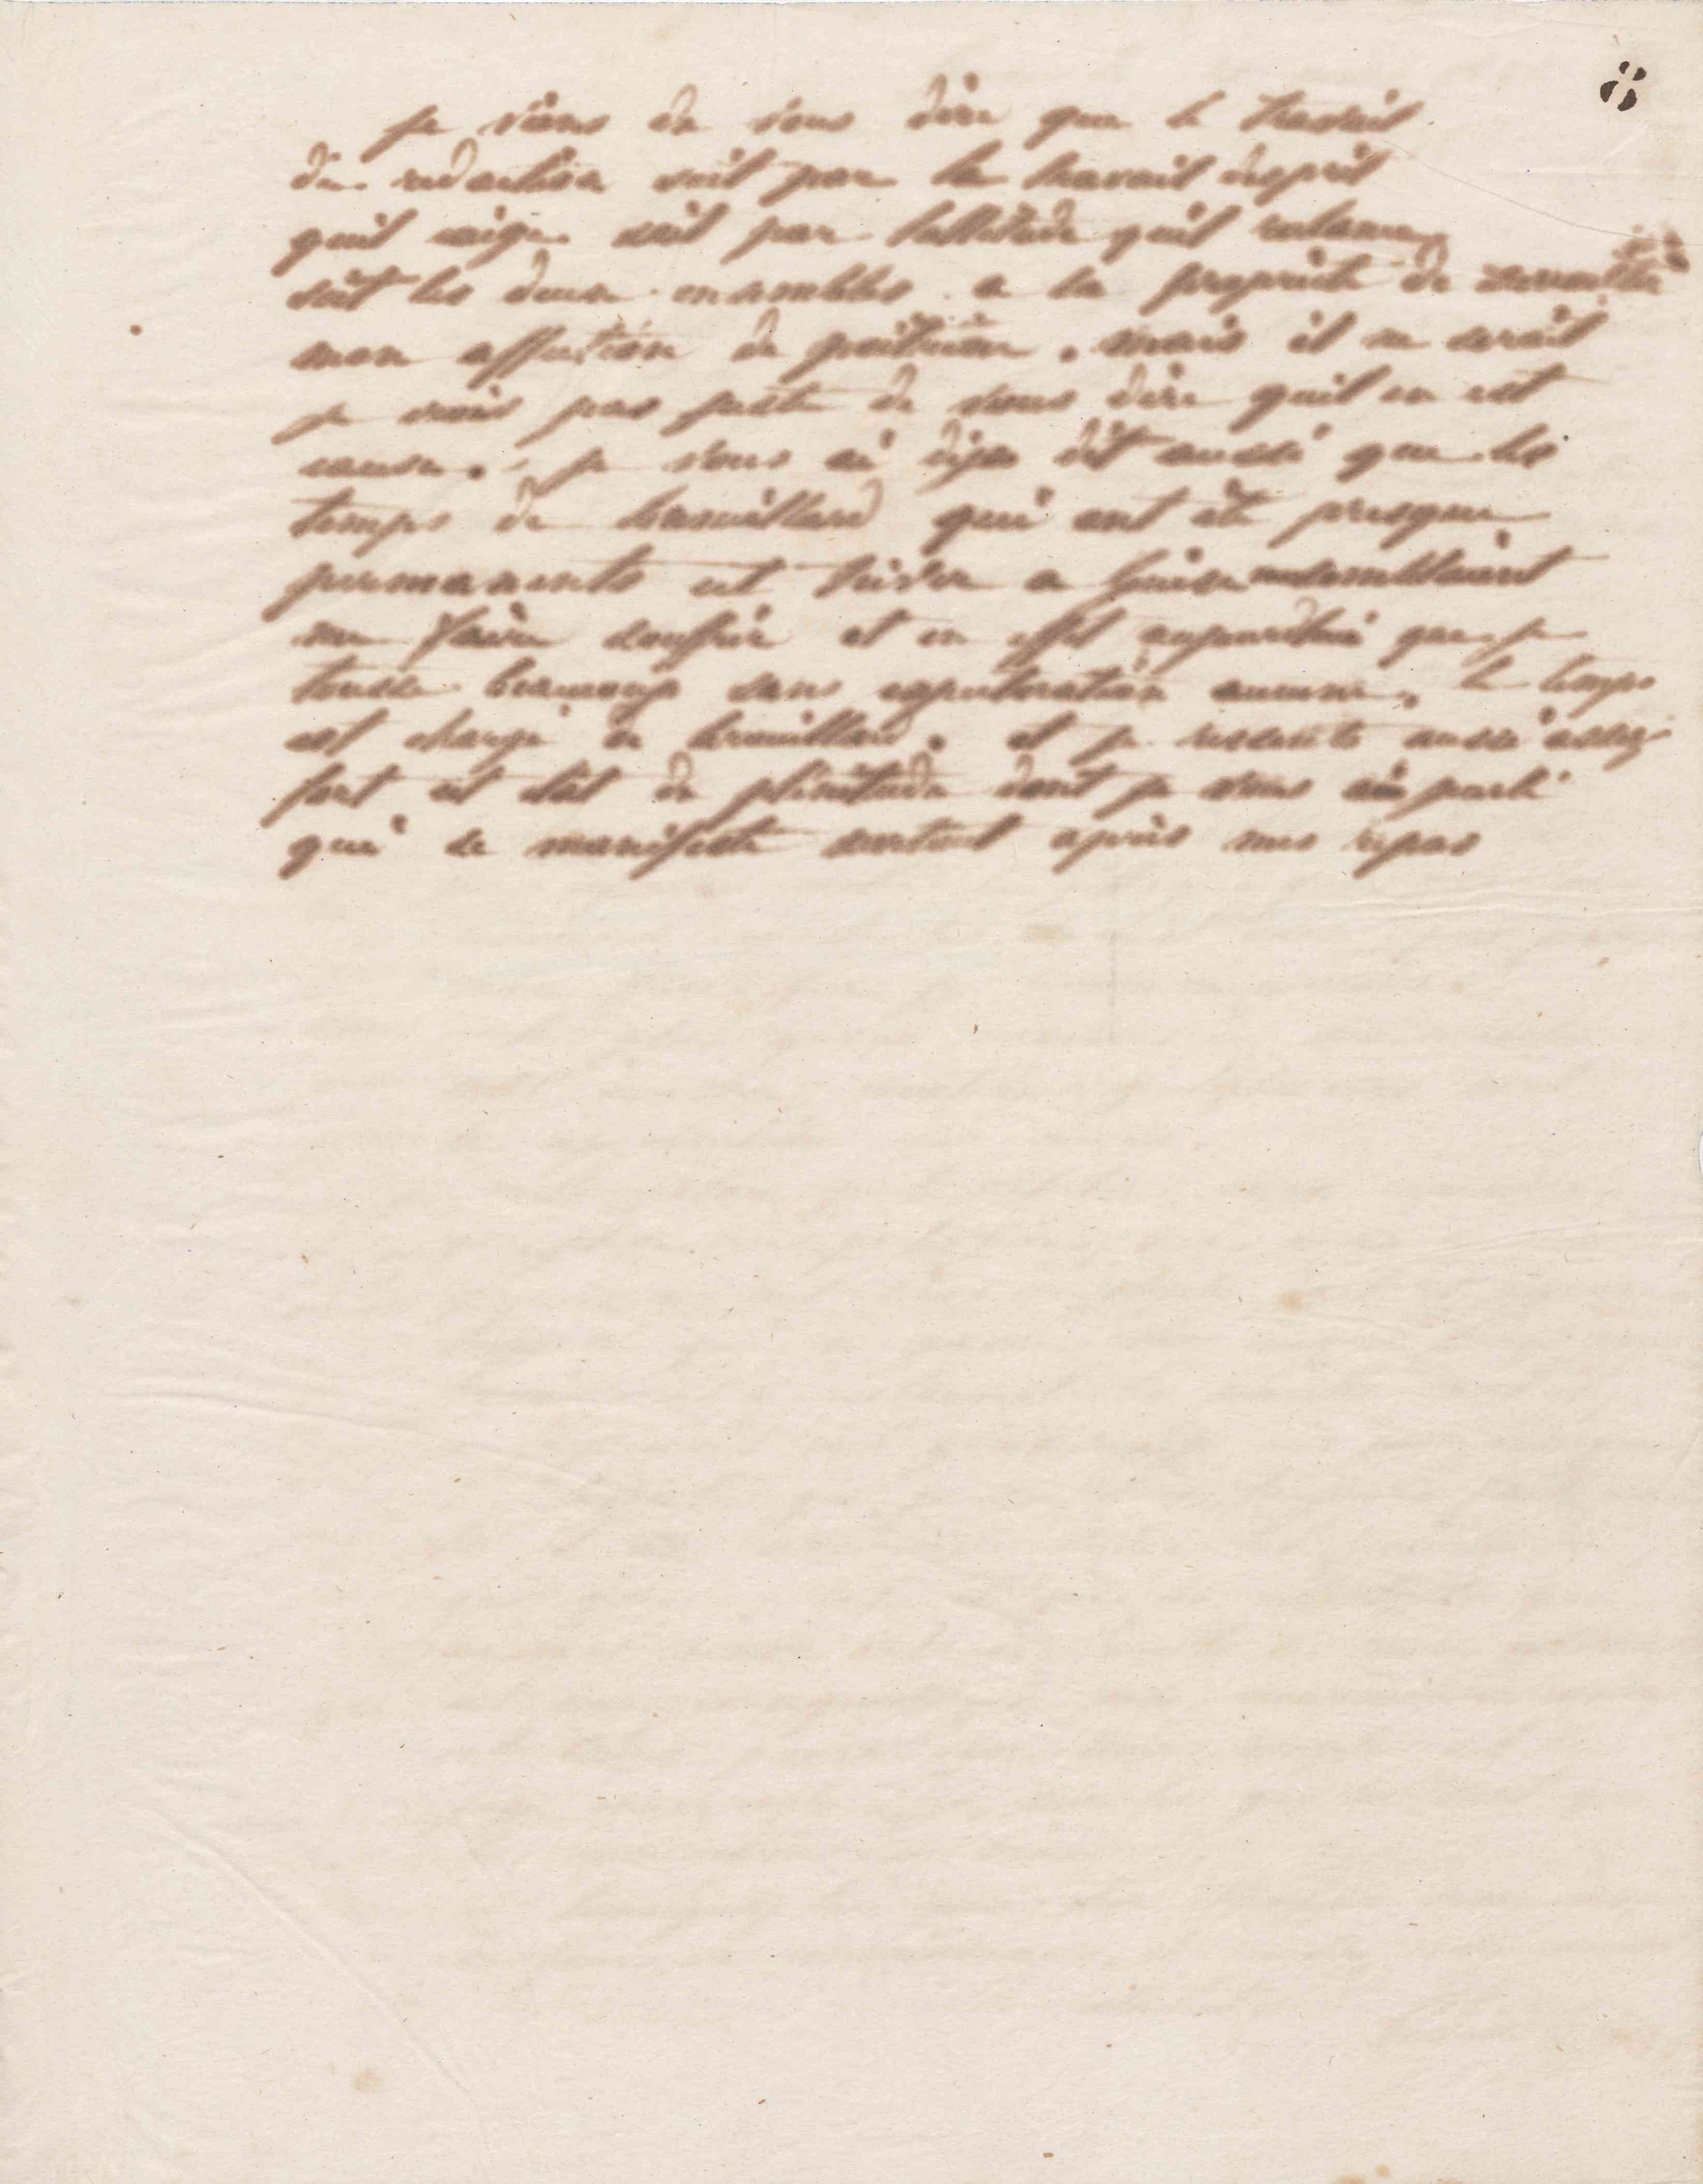 8
je viens de vous dire que le travail
de redaction soit par le travail desprit
quil exige soit par lattitude quil reclame
soit les deux ensembles a la propriété de
mon affection de poitrine. mais il ne serait
je crois pas juste de vous dire quil en est
cause. je vous ai deja dit aussi que les
temps de brouillard qui ont été presque
permanents cet hiver a Guise semblaient
me faire souffrir et en effet aujourdhui que je
tousse beaucoup sans expectoration aucune, le temps
est chargé de brouillard. et je ressents aussi assez
fort cet état de plénitude dont je vous ai parlé
qui se manifeste surtout après mes repas